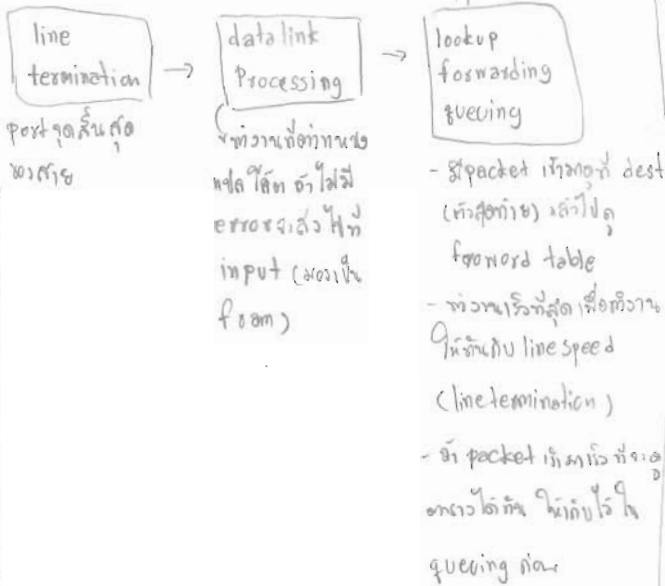 line
termination
→
data link
Processing
→
lookup
forwarding
queuing
port จุดสิ้นสุด
ของสาย
ทำงานที่ตำแหน่ง
ถ้าไม่มี
error จะส่งไปที่
input (มองเป็น
- มี packet เข้ามาดูที่ dest
(ตัวสุดท้าย) แล้วไปดู
forword table
- ทำงานเร็วที่สุด เพื่อทำงาน
ให้ทันกับ line speed
(line termination)
- ถ้า packet เข้ามาเร็วที่จะดู
ตารางได้ทัน ให้เก็บไว้ใน
queuing ก่อน